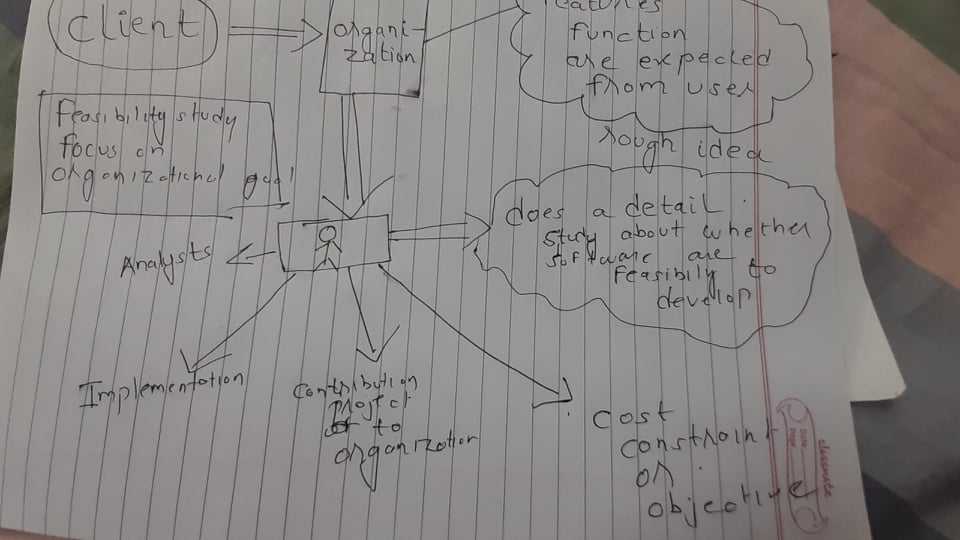 Client
organi-
zation
features
function
are expected
from user
rough idea
Feasibility study
focus on
organizational goal
does a detail
study about whether
software are
feasibily to
develop
Analysts
Implementation
Contribution
project
to
organization
cost
constraint
on
objective
classmate
Date
Page